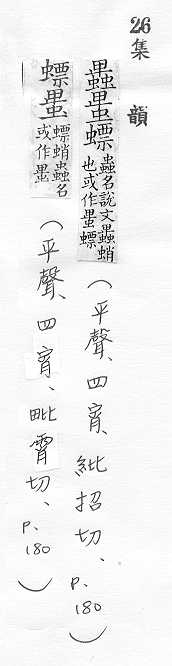 26
集韻
螵
蟲名說文蛸
也或作螵
（平聲、四宵、紕招切、p.180）
螵
螵蛸蟲名
或作
（平聲、四宵、毗霄切、p.180）